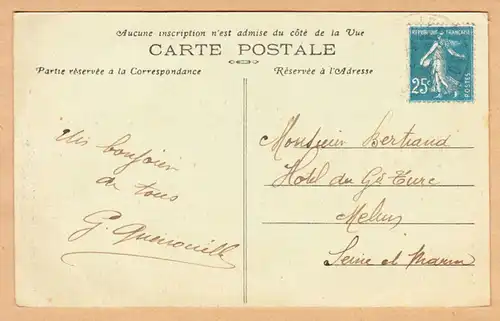 Aucune inscription n'est admise du côté de la Vue
CARTE POSTALE
Partie réservée à la Correspondance
Réservée à l'Adresse
REPUBLIQUE FRANÇAISE
25c
POSTES
bonjour
à tous
G.
Monsieur Bertrand
Hotel du Gd Turc
Melun
Seine et Marne